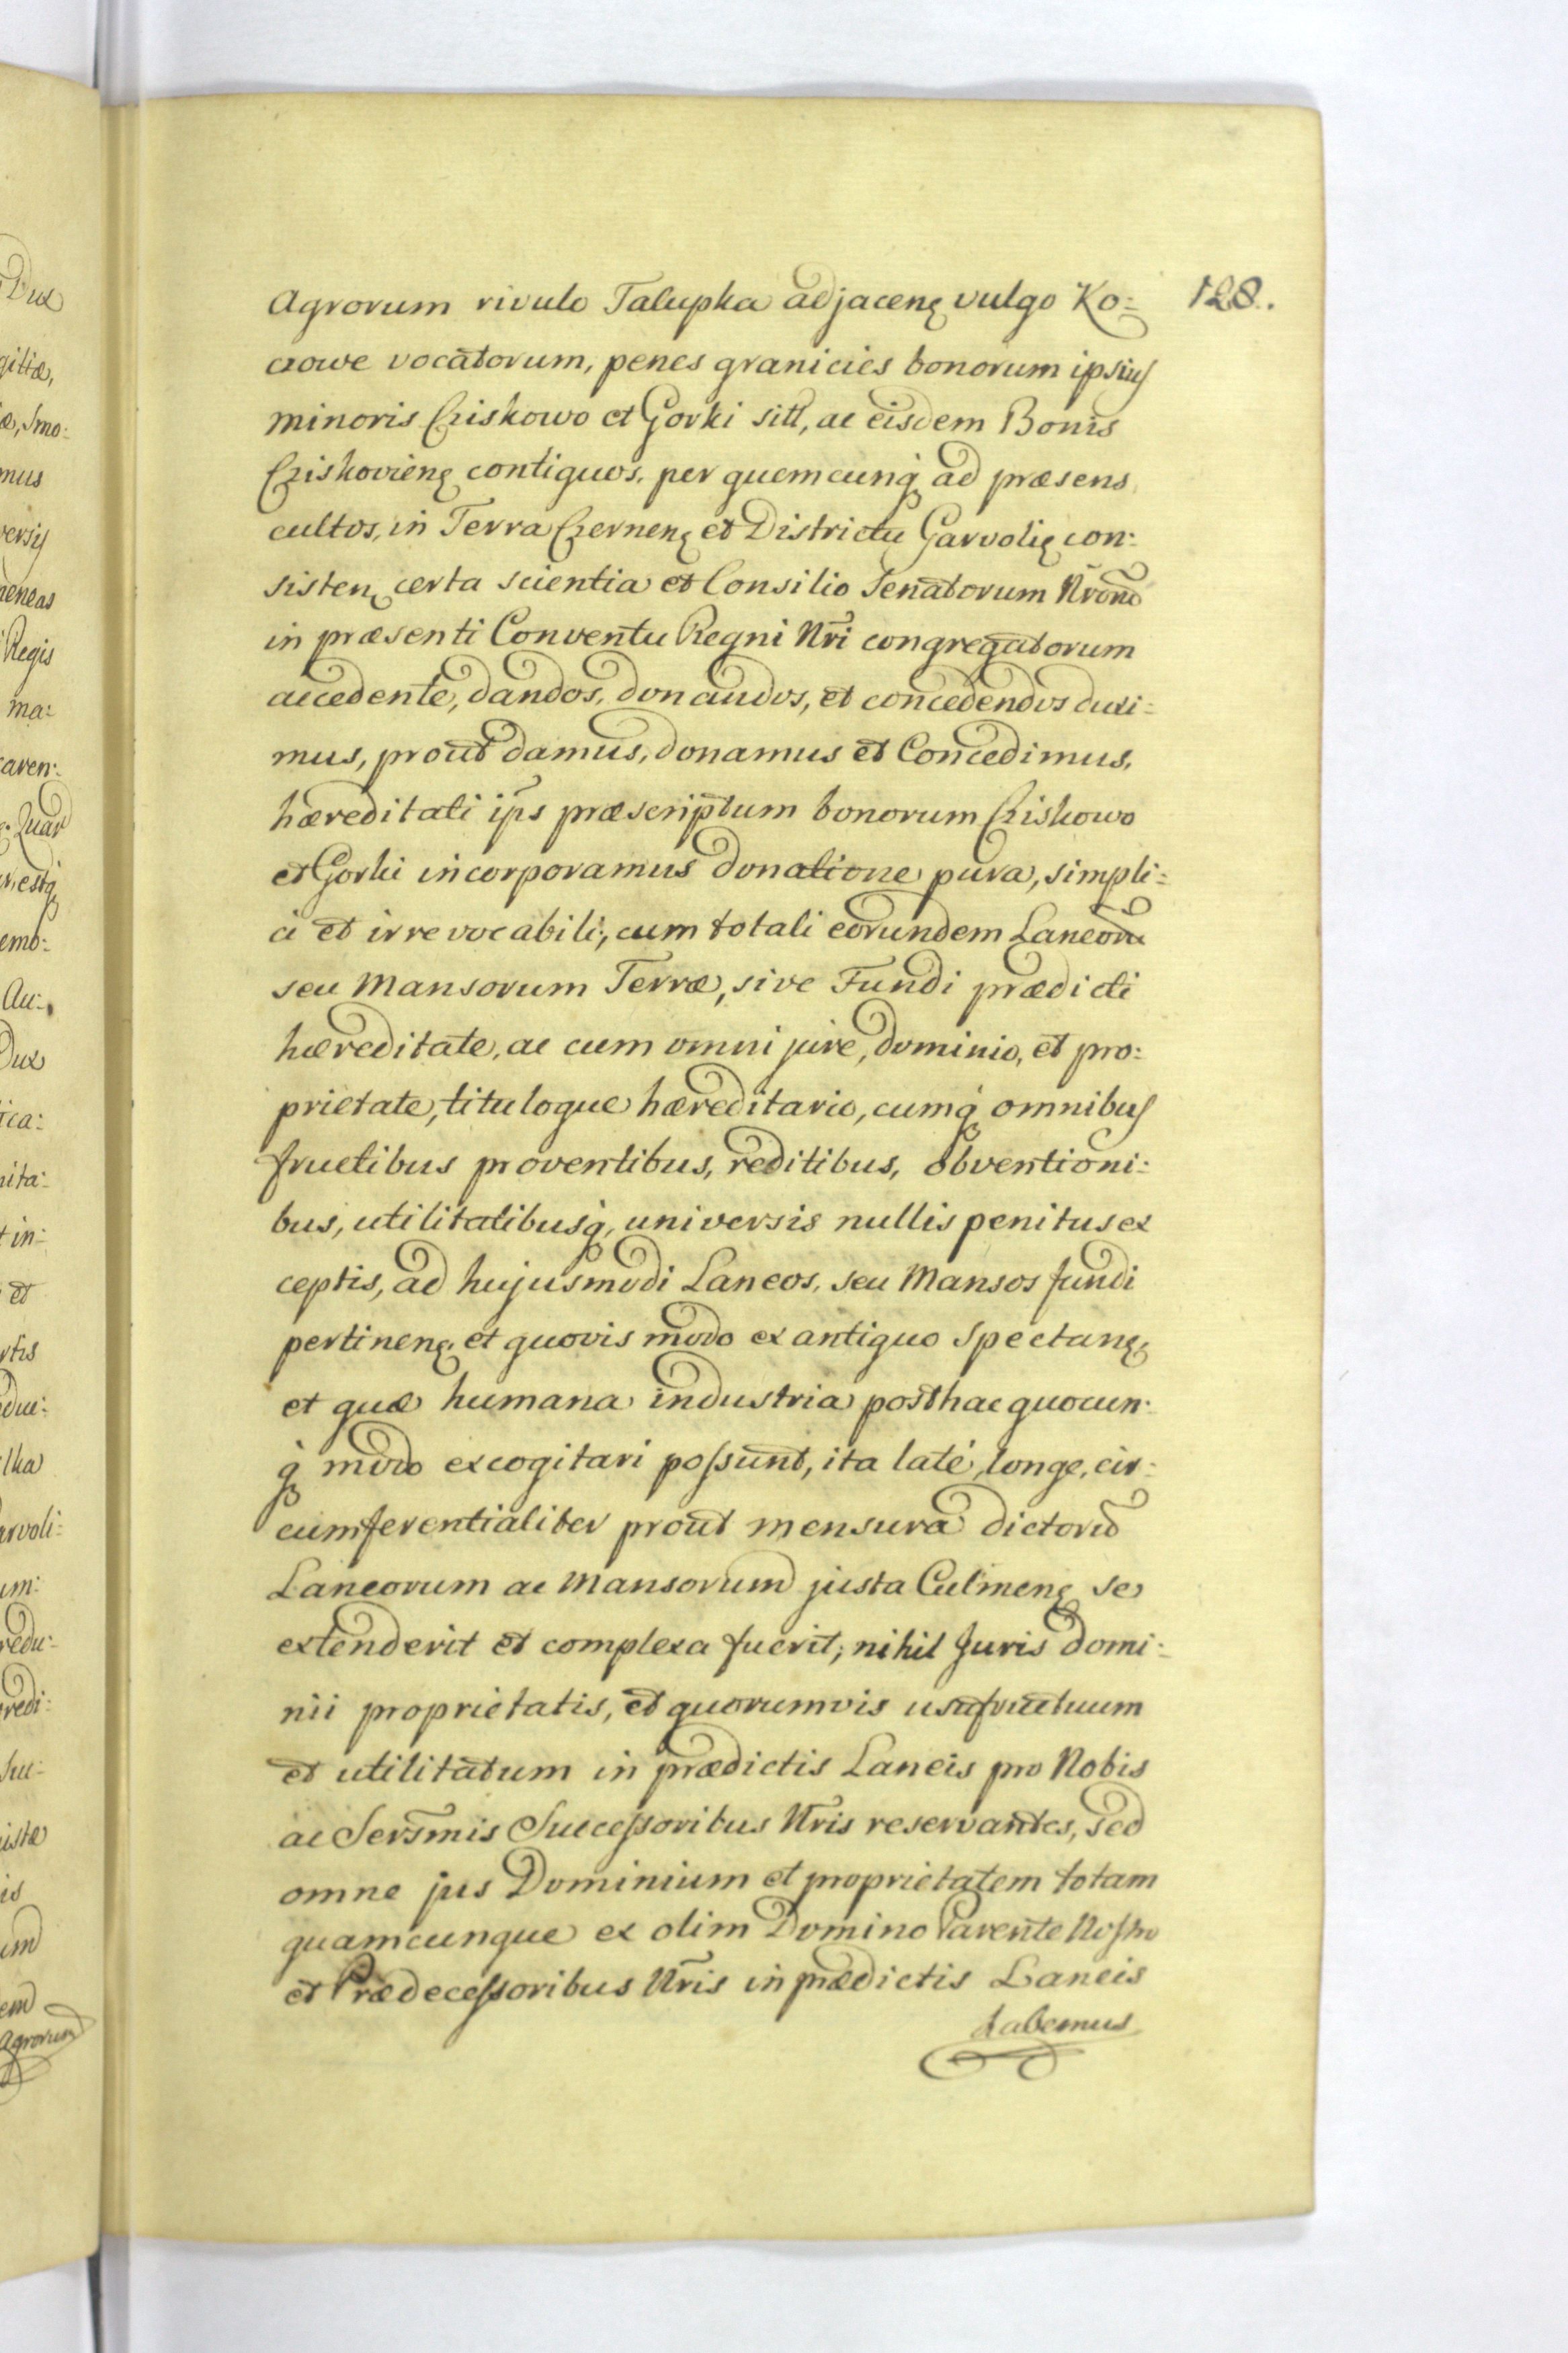 128.
Agrorum rivulo Talupka adjacenȩ vulgo Ko:
czowe vocatorum, penes granicies bonorum ipsius
minoris Cziskowo et Gorki sitt, ac eisdem Bonis
Cziskovienȩ contiguos, per quemcunq̨ ad præsens
cultos, in Terra Czernenȩ et Districtu Garvoliȩ con:
sistenȩ certa scientia et Consilio Senatorum Nrorū
in præsenti Conventu Regni Nri congregatorum
accedente, dandos, donandos, et concedendos duxi:
mus, prout damus, donamus et Concedimus,
hæreditati ips præscriptum bonorum Cziskowo
et Gorki incorporamus donatione pura, simpli:
ci et irrevocabili, cum totali eorundem Laneorū
seu Mansorum Terræ, sive Fundi prædicti
hæreditate, ac cum omni jure, dominio, et pro:
prietate, tituloque hæreditario, cumq̨ omnibus
fructibus proventibus, reditibus, obventioni:
bus, utilitatibusq̨, universis nullis penitus ex
ceptis, ad hujusmodi Laneos, seu Mansos fundi
pertinenȩ et quovis modo ex antiquo Spectanȩ
et quæ humana industria posthac quocun:
q̨ modo excogitari possunt, ita laté, longe, cir:
cumferentialiter prout mensura dictorū
Laneorum ac Mansorum justa Culmenȩ se
extenderit et complexa fuerit; nihil Juris Domi:
nii proprietatis, et quorumvis usufructuum
et utilitatum in prædictis Laneis pro Nobis
ac Sersmis Successoribus Nris reservantes, sed
omne jus Dominium et proprietatem totam
quamcunque ex olim Domino Parente Nostro
et Prædecessoribus Nris in prædictis Laneis
habemus